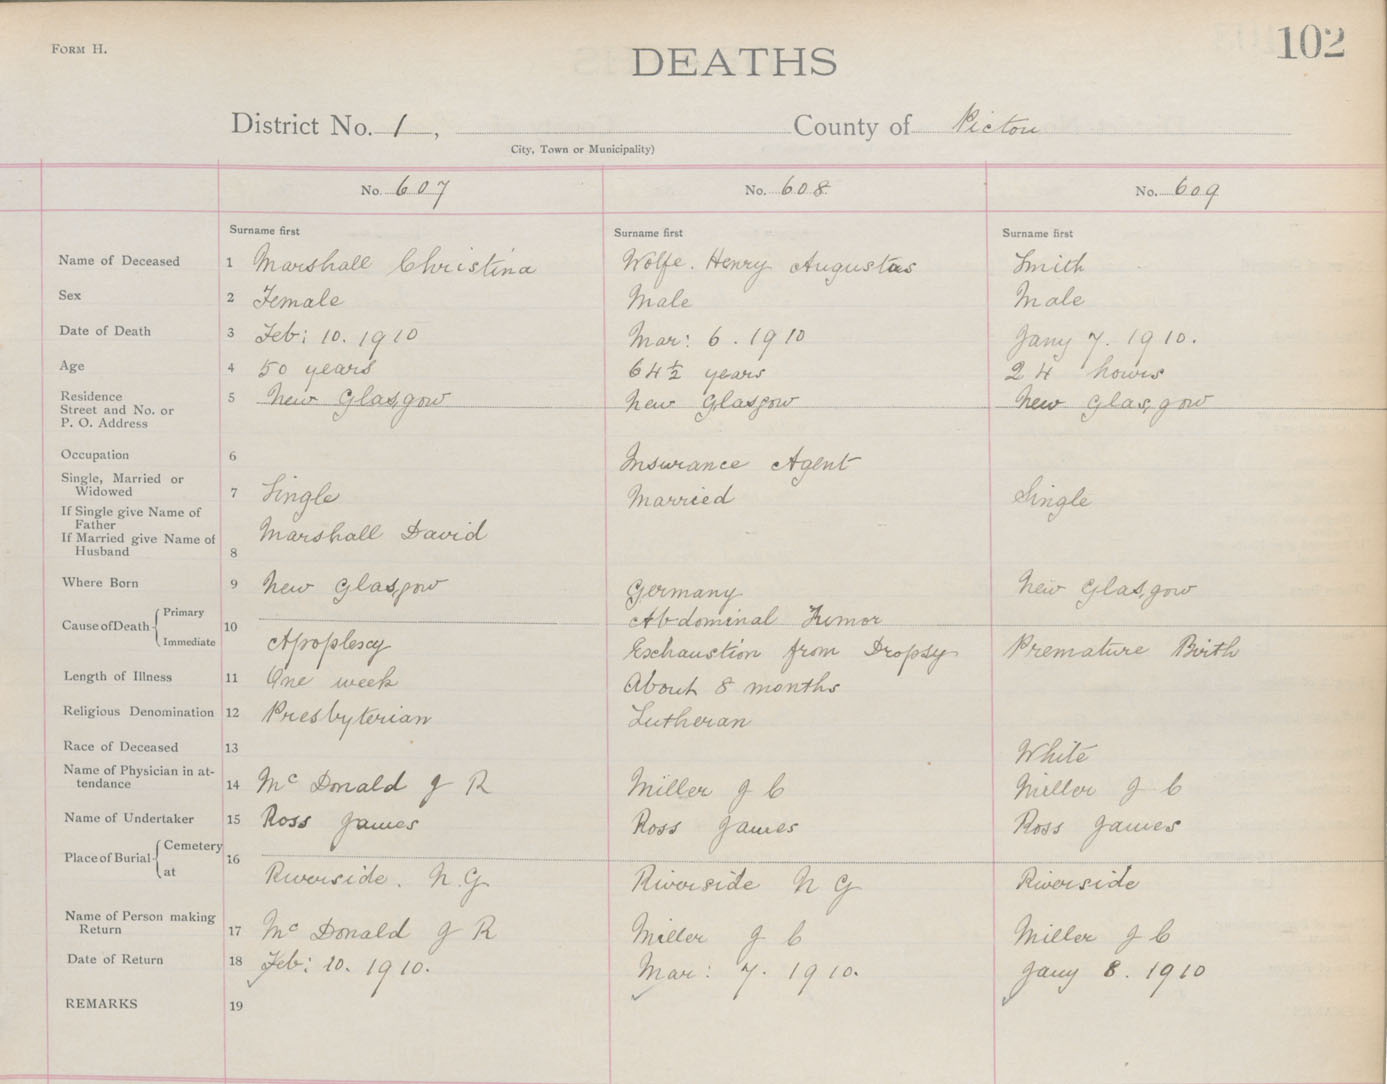 FORM H.
DEATHS
102
District No. 1, County of Pictou
City, Town or Municipality)
No. 607 No. 608 No. 609
Surname first Surname first Surname first
Name of Deceased 1 Marshall Christina Wolfe. Henry Augustus Smith
Sex 2 Female Male Male
Date of Death 3 Feb: 10. 1910 Mar: 6. 1910 Jany 7. 1910.
Age 4 50 years 64½ years 24 hours
Residence
Street and No. or
P. O. Address
5 New Glasgow New Glasgow New Glasgow
Occupation 6 Insurance Agent
Single, Married or
Widowed
7 Single Married Single
If Single give Name of
Father
If Married give Name of
Husband
8 Marshall David
Where Born 9 New Glasgow Germany New Glasgow
Cause of Death Primary 10 Abdominal Tumor
Immediate Apoplexy Exhaustion from Dropsy Premature Birth
Length of Illness 11 One week About 8 months
Religious Denomination 12 Presbyterian Lutheran
Race of Deceased 13 White
Name of Physician in at-
tendance
14 Mc Donald J R Miller J C Miller J C
Name of Undertaker 15 Ross James Ross James Ross James
Place of Burial Cemetery 16
at Riverside. N.G Riverside N G Riverside
Name of Person making
Return
17 Mc Donald J R Miller J C Miller J C
Date of Return 18 Feb: 10. 1910. Mar: 7. 1910. Jany 8. 1910
REMARKS 19